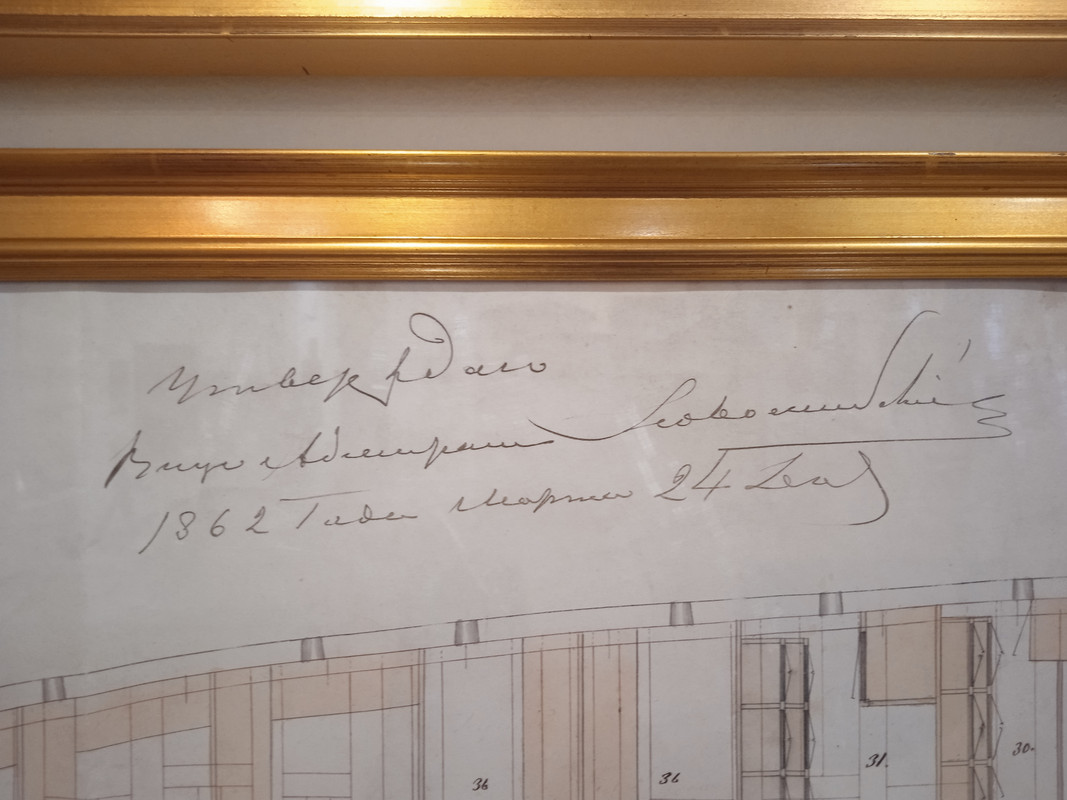 Утверждаю
Вице Адмирал Новосильский
1862 Года Марта 24 Дня
36 36 31. 30.